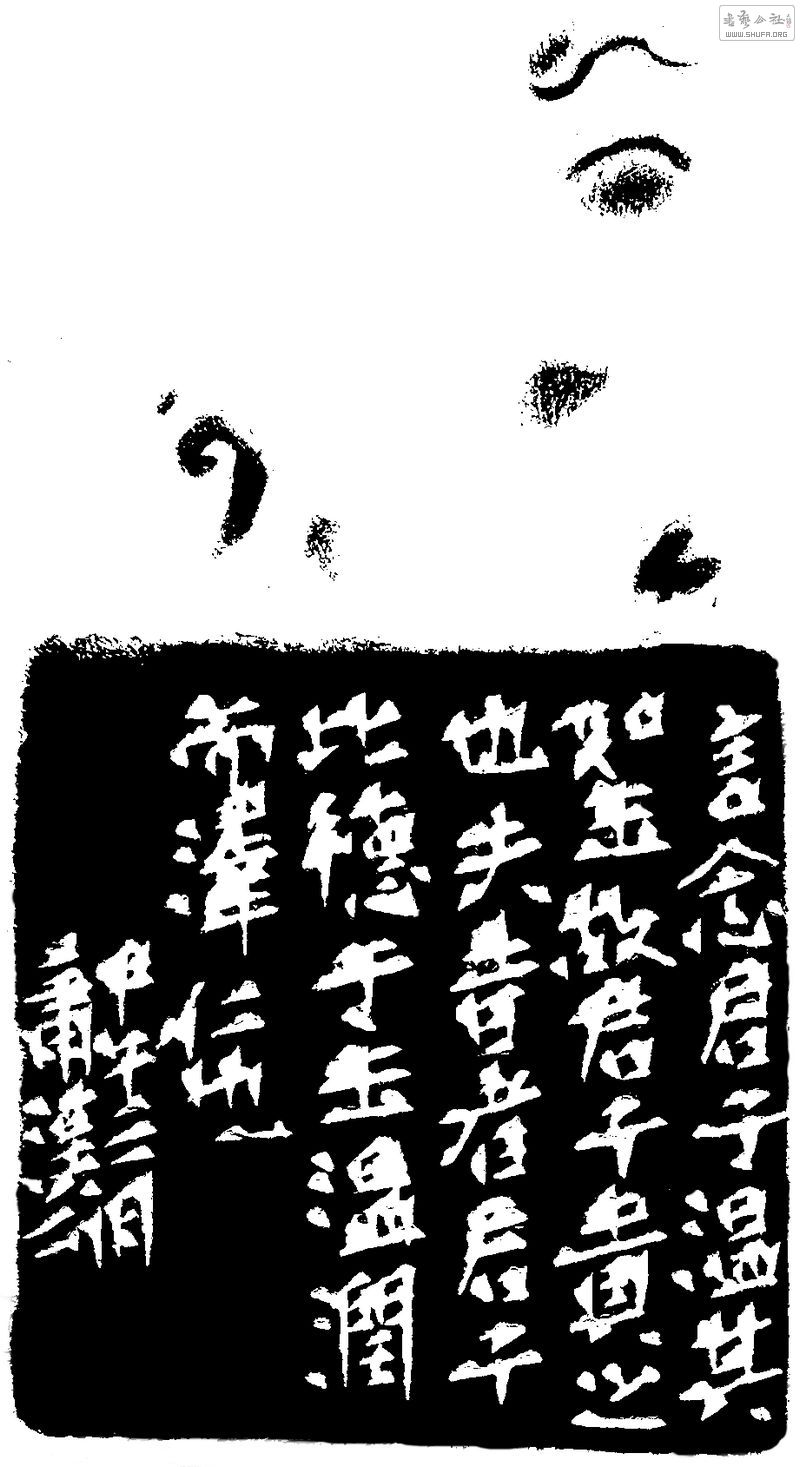 書藝公社
WWW.SHUFA.ORG
言念君子温其
如玉故君子貴之
也夫昔者君子
比德于玉温潤
而澤仁也
甲午二月
肅漢